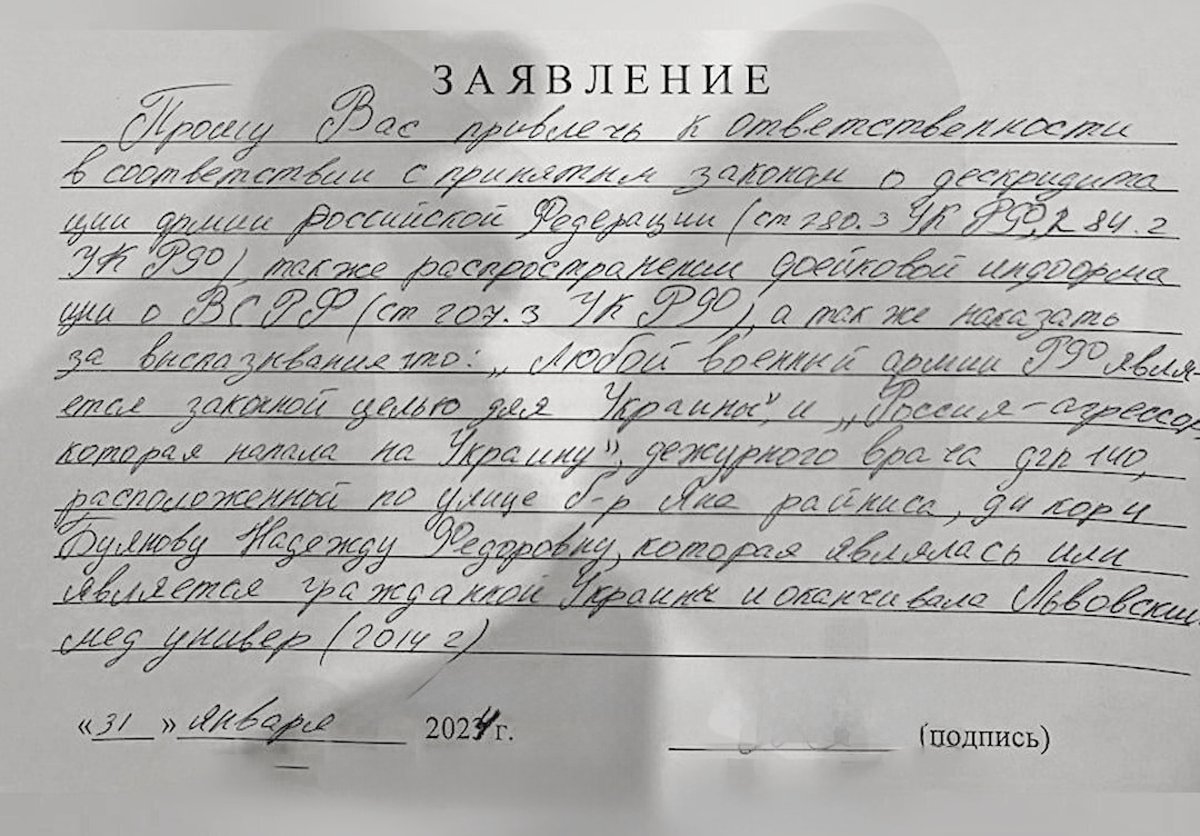 ЗАЯВЛЕНИЕ
Прошу Вас привлечь к ответственности
в соответствии с принятым законом о дескридита
ции армии российской Федерации (ст 280.3 УК РФ, 284.2
УК РФ) также распространении фейковой информа
ции о ВС РФ (ст 207.3 УК РФ), а так же наказать
за высказывание что: „Любой военный армии РФ явля-
ется законной целью для Украины", и „Россия-агрессор
которая напала на Украину", дежурного врача дгп 140,
расположенной по улице б-р Яна райниса,
Буянову Надежду Федоровну, которая являлась или
является гражданкой Украины и оканчивала Львовский
мед универ (2014 г)
«31» января 2024 г.
(подпись)